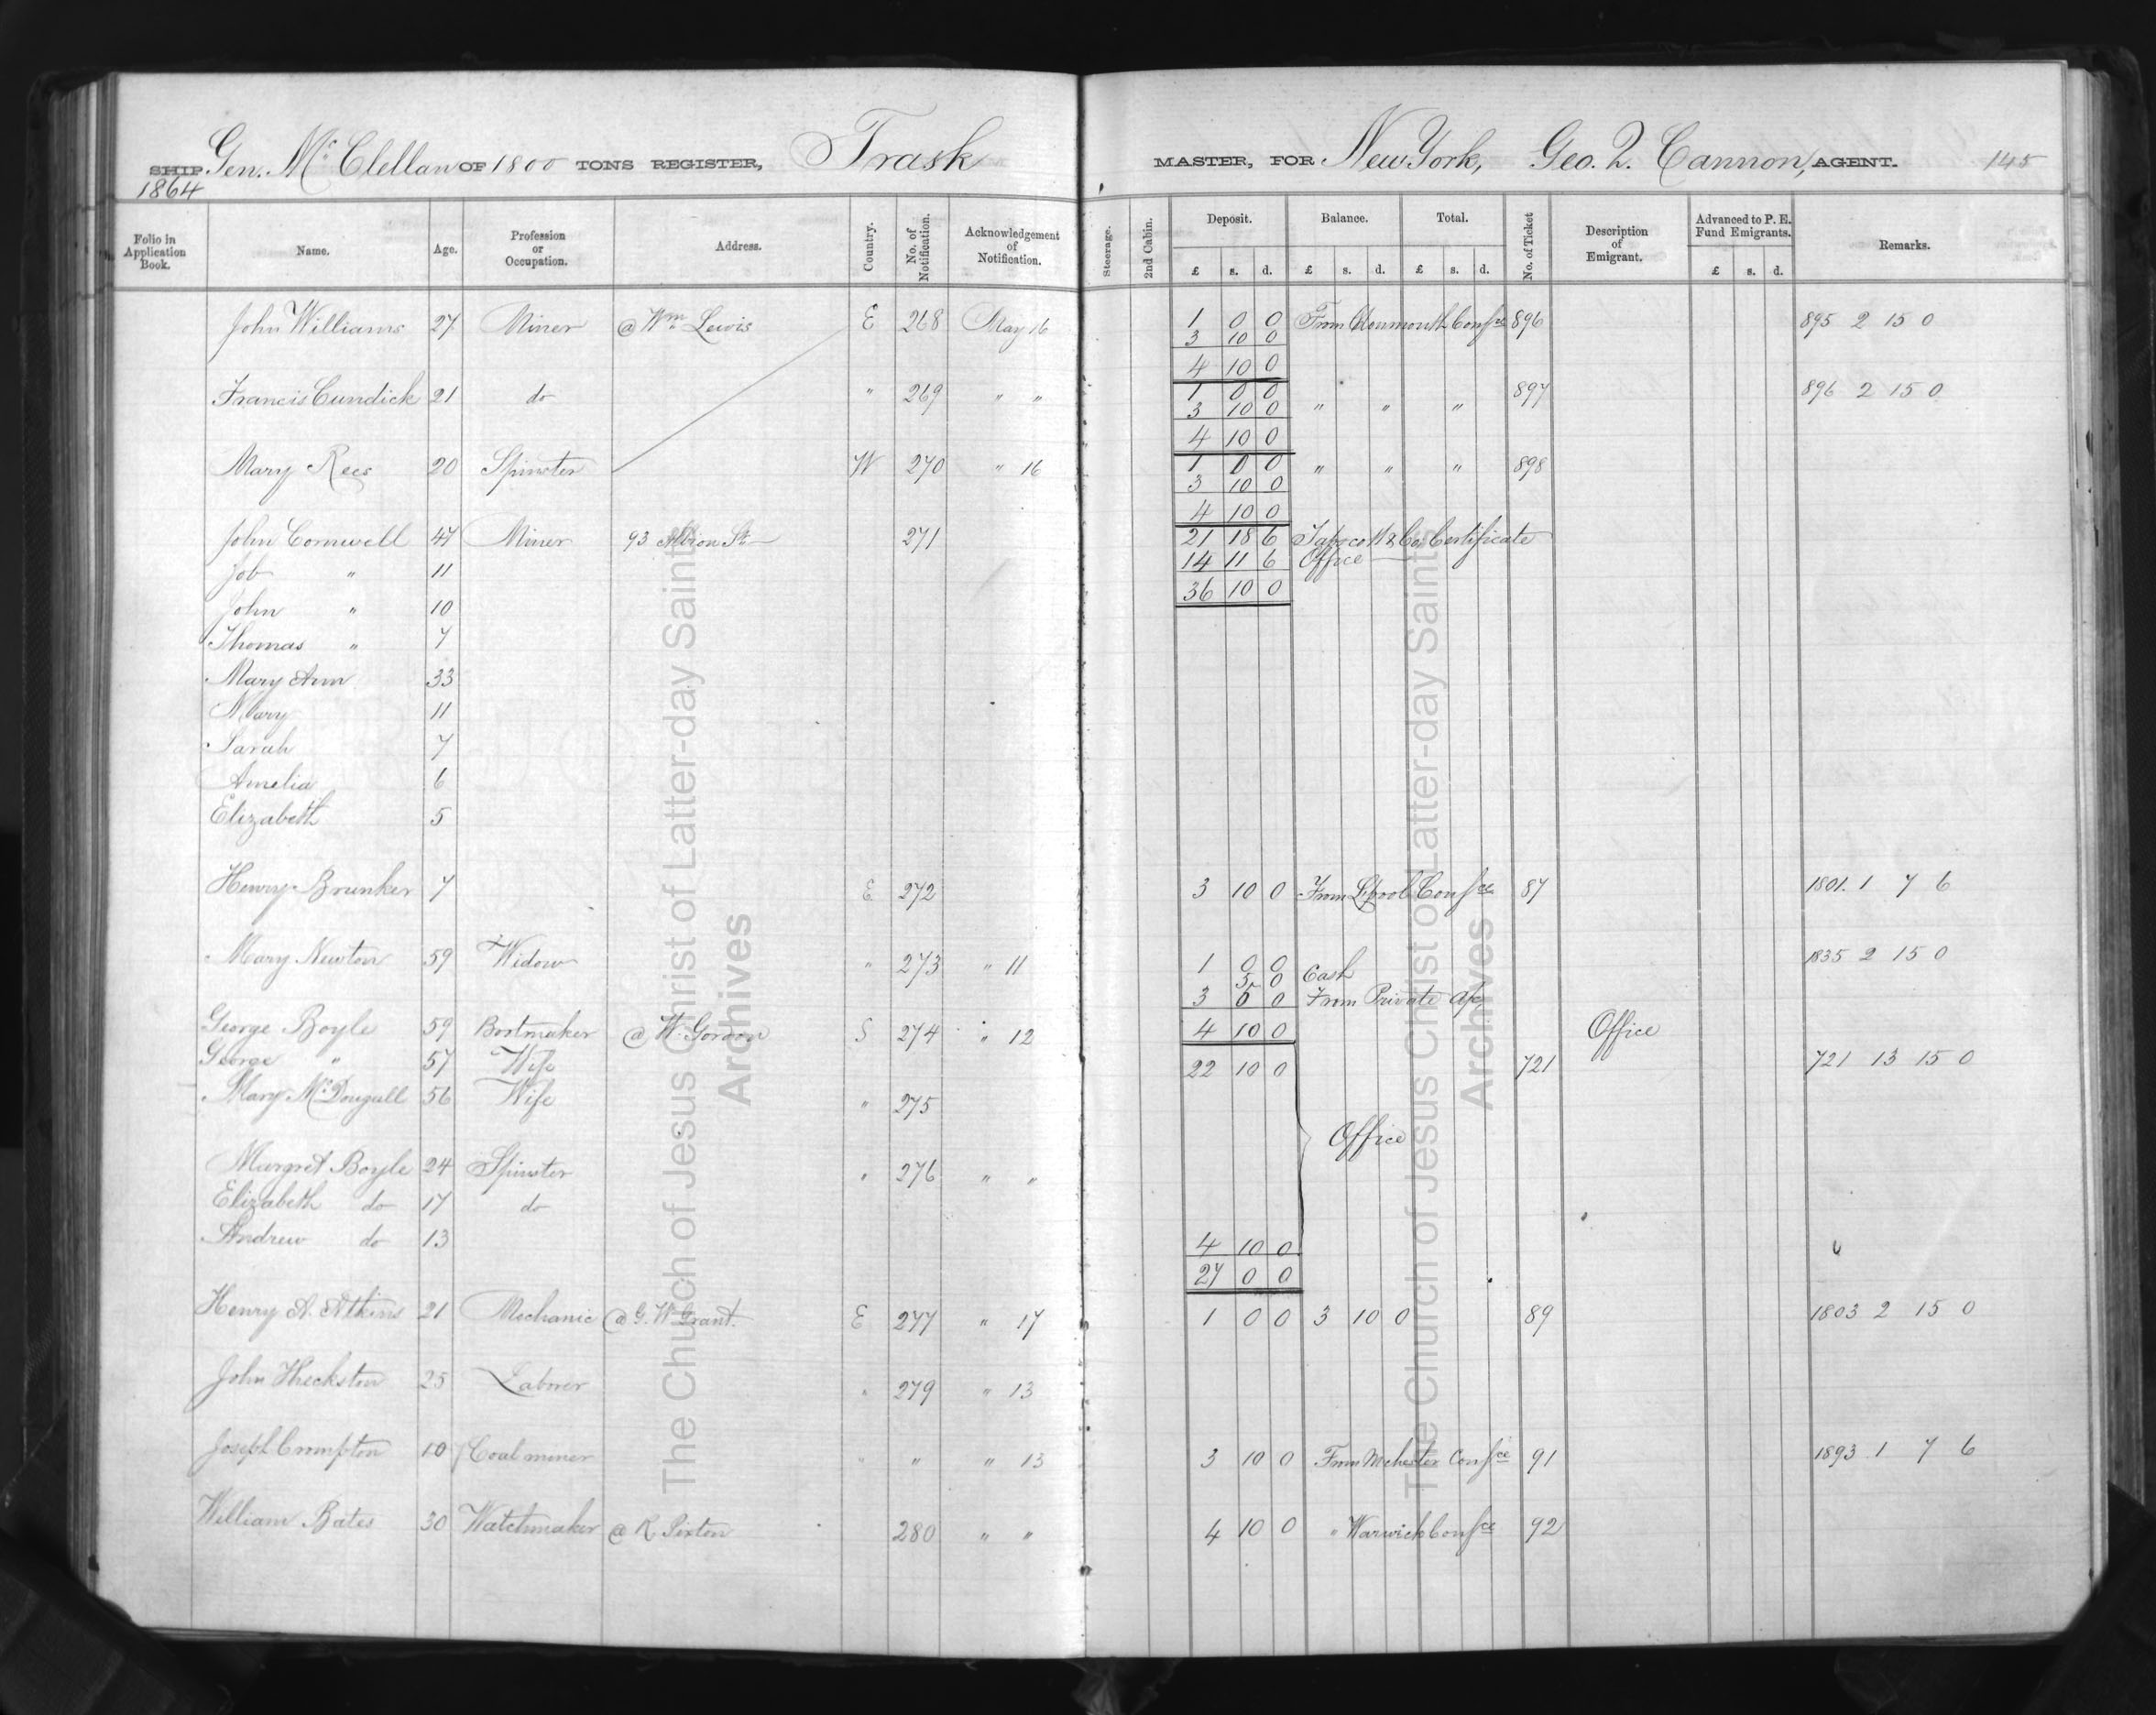 SHIP Gen. McClellan OF 1800 TONS REGISTER, Trask MASTER, FOR New York, Geo. Q. Cannon, AGENT. 145
1864
Folio in Application Book. Name. Age. Profession or Occupation. Address. Country. No. of Notification. Acknowledgement of Notification. Steerage. 2nd Cabin. Deposit. Balance. Total. No. of Ticket Description of Emigrant. Advanced to P. E. Fund Emigrants. Remarks.
£ s. d. £ s. d. £ s. d. £ s. d.
John Williams 27 Miner @ Wm Lewis E 268 May 16 1 0 0 From Monmouth Confce 896 895 2 15 0
3 10 0
4 10 0
Francis Cundick 21 do " 269 " " 1 0 0 897 896 2 15 0
3 10 0 " " "
4 10 0
Mary Rees 20 Spinster W 270 " 16 1 0 0 " " " 898
3 10 0
4 10 0
John Cornwell 47 Miner 93 Albion St 271 21 18 6 & Co. Certificate
14 11 6 Office
Job " 11
36 10 0
John " 10
Thomas " 7
Mary Ann 33
Mary 11
Sarah 7
Amelia 6
Elizabeth 5
Henry Brunker 7 E 272 3 10 0 From Lpool Confce 87 1801. 1 7 6
Mary Newton 59 Widow " 273 " 11 1 0 0 1835 2 15 0
5 0 Cash
3 5 0 From Private a/c
George Boyle 59 Bootmaker @ W. Gordon S 274 " 12 4 10 0 Office
George " 57 Wife 22 10 0 721 721 13 15 0
Mary McDougall 56 Wife " 275
Office
Margret Boyle 24 Spinster " 276 " "
Elizabeth do 17 do
Andrew do 13 4 10 0
27 0 0
Henry A. Atkins 21 Mechanic @ G. W. Grant. E 277 " 17 1 0 0 3 10 0 89 1803 2 15 0
John Heckston 25 Laborer " 279 " 13
Joseph Crompton 10 Coal miner " " " 13 3 10 0 From Mchester Confce 91 1893. 1 7 6
William Bates 30 Watchmaker @ R. Pixton 280 " " 4 10 0 " Warwick Confce 92
The Church of Jesus Christ of Latter-day Saints
Archives
The Church of Jesus Christ of Latter-day Saints
Archives